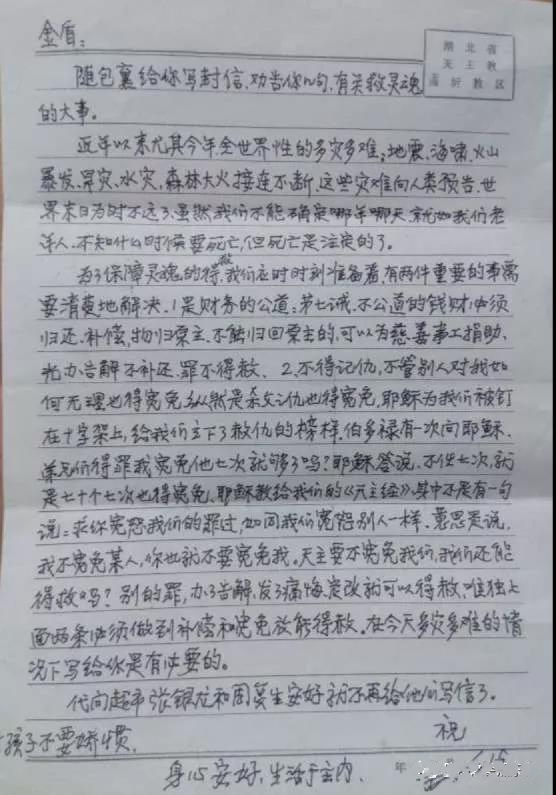 金盾：
湖北省
天主教
蒲圻教区
随包裹给你写封信，劝告你几句，有关救灵魂
的大事。
近年以来尤其今年全世界性的多灾多难：地震、海啸、火山
暴发、旱灾、水灾，森林大火接连不断，这些灾难向人类预告，世
界末日为时不远了，虽然我们不能确定哪年哪天，就如我们老
年人，不知什么时候要死亡，但死亡是注定的了。
为了保障灵魂的得救，我们应时时刻准备着，有两件重要的事需
要清楚地解决，1是财务的公道：第七诫，不公道的钱财必须
归还、补偿，物归原主，不能归回原主的，可以为慈善事工捐助，
光办告解不补还，罪不得赦。2、不得记仇，不管别人对我如
何无理也得宽免，纵然是杀父之仇也得宽免，耶稣为我们被钉
在十字架上，给我们立下了赦仇的榜样，伯多禄有一次问耶稣，
弟兄们得罪我宽免他七次就够了吗？耶稣答说，不仅七次，就
是七十个七次也得宽免，耶稣教给我们的《天主经》，其中不是有一句
说：求你宽恕我们的罪过，如同我们宽恕别人一样，意思是说，
我不宽免某人，你也就不要宽免我。天主要不宽免我们，我们还能
得救吗？别的罪，办了告解，发了痛悔定改就可以得赦，唯独上
面两条必须做到补偿和宽免放能得赦。在今天多灾多难的情
况下写给你是有必要的。
代问超市张银龙和周复生安好，就不再给他们写信了。
孩子不要娇惯。
祝
身心安好，生活于主内。
年